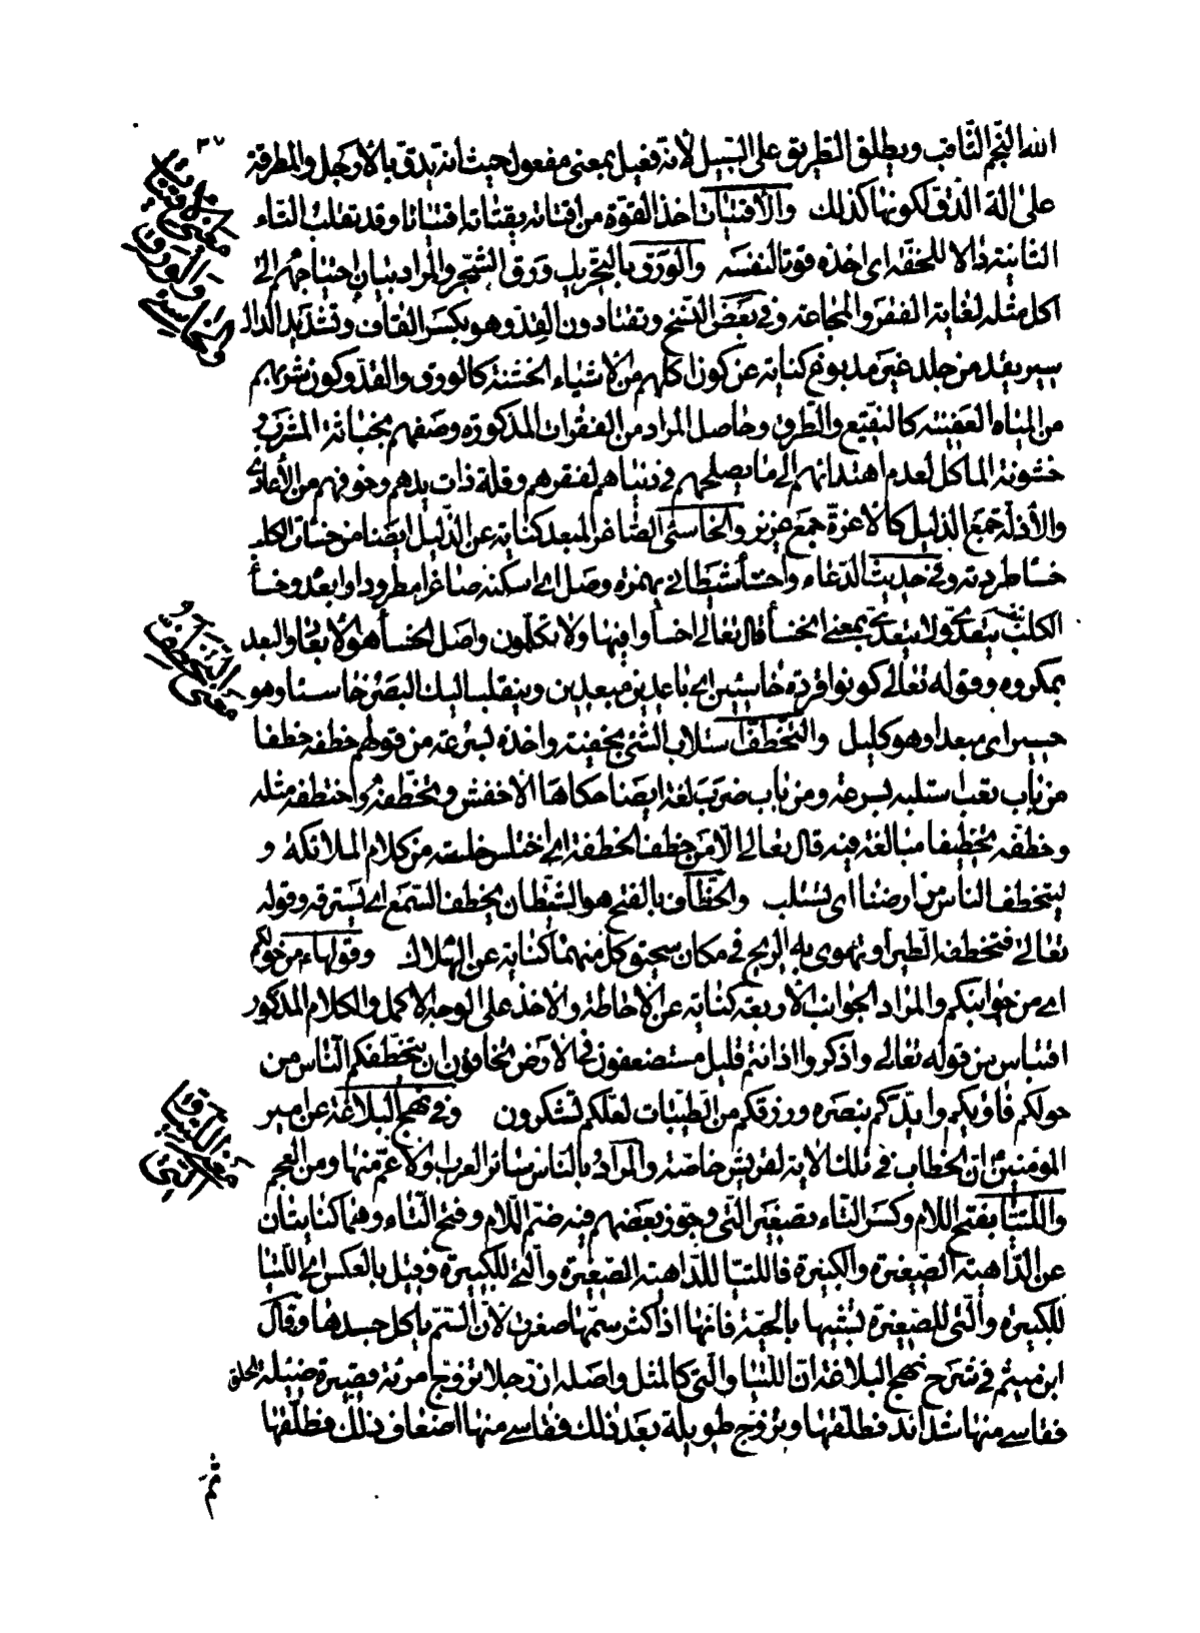 ٣٠٧
الله النّجم الثّاقب ويطلق الطريق على السّبيل لأنّه فعيل بمعنى مفعول حيث انّه يدقّ بالأرجل والمطرقة
على آلة الدّقّ لكونها كذلك والاقتيات اخذ القوّة من اقتاته يقتاته اقتياتا وقد تقلب التاء
الثانية دالا للخفّة اى اخذه قوتا لنفسه والورق بالتّحريك ورق الشّجر والمراد بيان احتياجهم الى
اكل مثله لغاية الفقر والمجاعة وفى بعض النّسخ وتقتادون القدّ وهو بكسر القاف وتشديد الدال
سير يقدّ من جلد غير مدبوغ كناية عن كون اكلهم من الاشياء الخشنة كالورق والقدّ وكون شربهم
من المياه العفينة كالنّقيع والطّرق وحاصل المراد من الفقرات المذكورة وصفهم بخباثة المشرب و
خشونة المأكل لعدم اهتدائهم الى ما يصلحهم فى دنياهم لفقرهم وقلّة ذات يدهم وخوفهم من الأعادى
والأذلّة جمع الذليل كالاعزّة جمع عزيز والخاسئ الصّاغر المبعد كناية عن الذّليل ايضا من خسأت الكلب
خسأ طردته وفى حديث الدّعاء واخسأ شيطانى بهمزة وصل اى اسكنه صاغرا مطرودا وابعده وخسأ
الكلب بنفسه يتعدّى ولا يتعدّى بمعنى انخسأ قال تعالى اخسأوا فيها ولا تكلّمون واصل الخسأ هو الابعاد والبعد
بمكروه وقوله تعالى كونوا قردة خاسئين اى باعدين مبعدين وينقلب اليك البصر خاسئا وهو
حسير اى مبعدا وهو كليل والتّخطّف استلاب الشّئ بخفية واخذه لسرعة من قولهم خطفه خطفا
من باب تعب استلبه بسرعة ومن باب ضرب لغة ايضا حكاها الاخفش وتخطّفه واختطفه مثله
وخطّفه تخطيفا مبالغة فيه قال تعالى الّا من خطف الخطفة اى اختلس خلسة من كلام الملائكة و
يتخطف الناس من ارضنا اى تستلب والخطّاف بالفتح هو الشّيطان يخطف السّمع اى يسترقه وقوله
تعالى فتخطفه الطير او تهوى به الريح فى مكان سحيق كلّ منهما كناية عن الهلاك وقولها من حولكم
اى من جوانبكم والمراد الجوانب الأربعة كناية عن الاحاطة والاخذ على الوجه الاكمل والكلام المذكور
اقتباس من قوله تعالى واذكروا اذ انتم قليل مستضعفون فى الارض تخافون ان يتخطّفكم النّاس من
حولكم فآويكم وايّدكم بنصره ورزقكم من الطيّبات لعلّكم تشكرون وفى نهج البلاغة عن امير
المؤمنين انّ الخطاب فى تلك الآية لقريش خاصّة والمراد بالناس سائر العرب والاعمّ منها ومن العجم
واللتيّا بفتح اللام وكسر التّاء تصغير الّتى وجوّز بعضهم فيه ضمّ اللام وفتح التّاء وهما كنايتان
عن الدّاهية الصّغيرة والكبيرة فاللتيّا للدّاهية الصّغيرة والّتى للكبيرة وقيل بالعكس اى اللّتيا
للكبيرة والّتى للصّغيرة تشبيها بالحيّة فانّها اذا كثر سمّها صغرت لأنّ السّمّ يأكل جسدها وقال
ابن ميثم فى شرح نهج البلاغة انّ اللتيّا والّتى كالمثل واصله انّ رجلا تزوّج امرئة قصيرة ضئيلة الخلق
فقاسى منها شدائد فطلّقها وتزوّج طويلة بعد ذلك فقاسى منها اضعاف ذلك فطلّقها
ثمّ
معنى الاقتيات
والورق
والخاسئ
معنى التّخطّف
معنى اللتيّا
والّتى